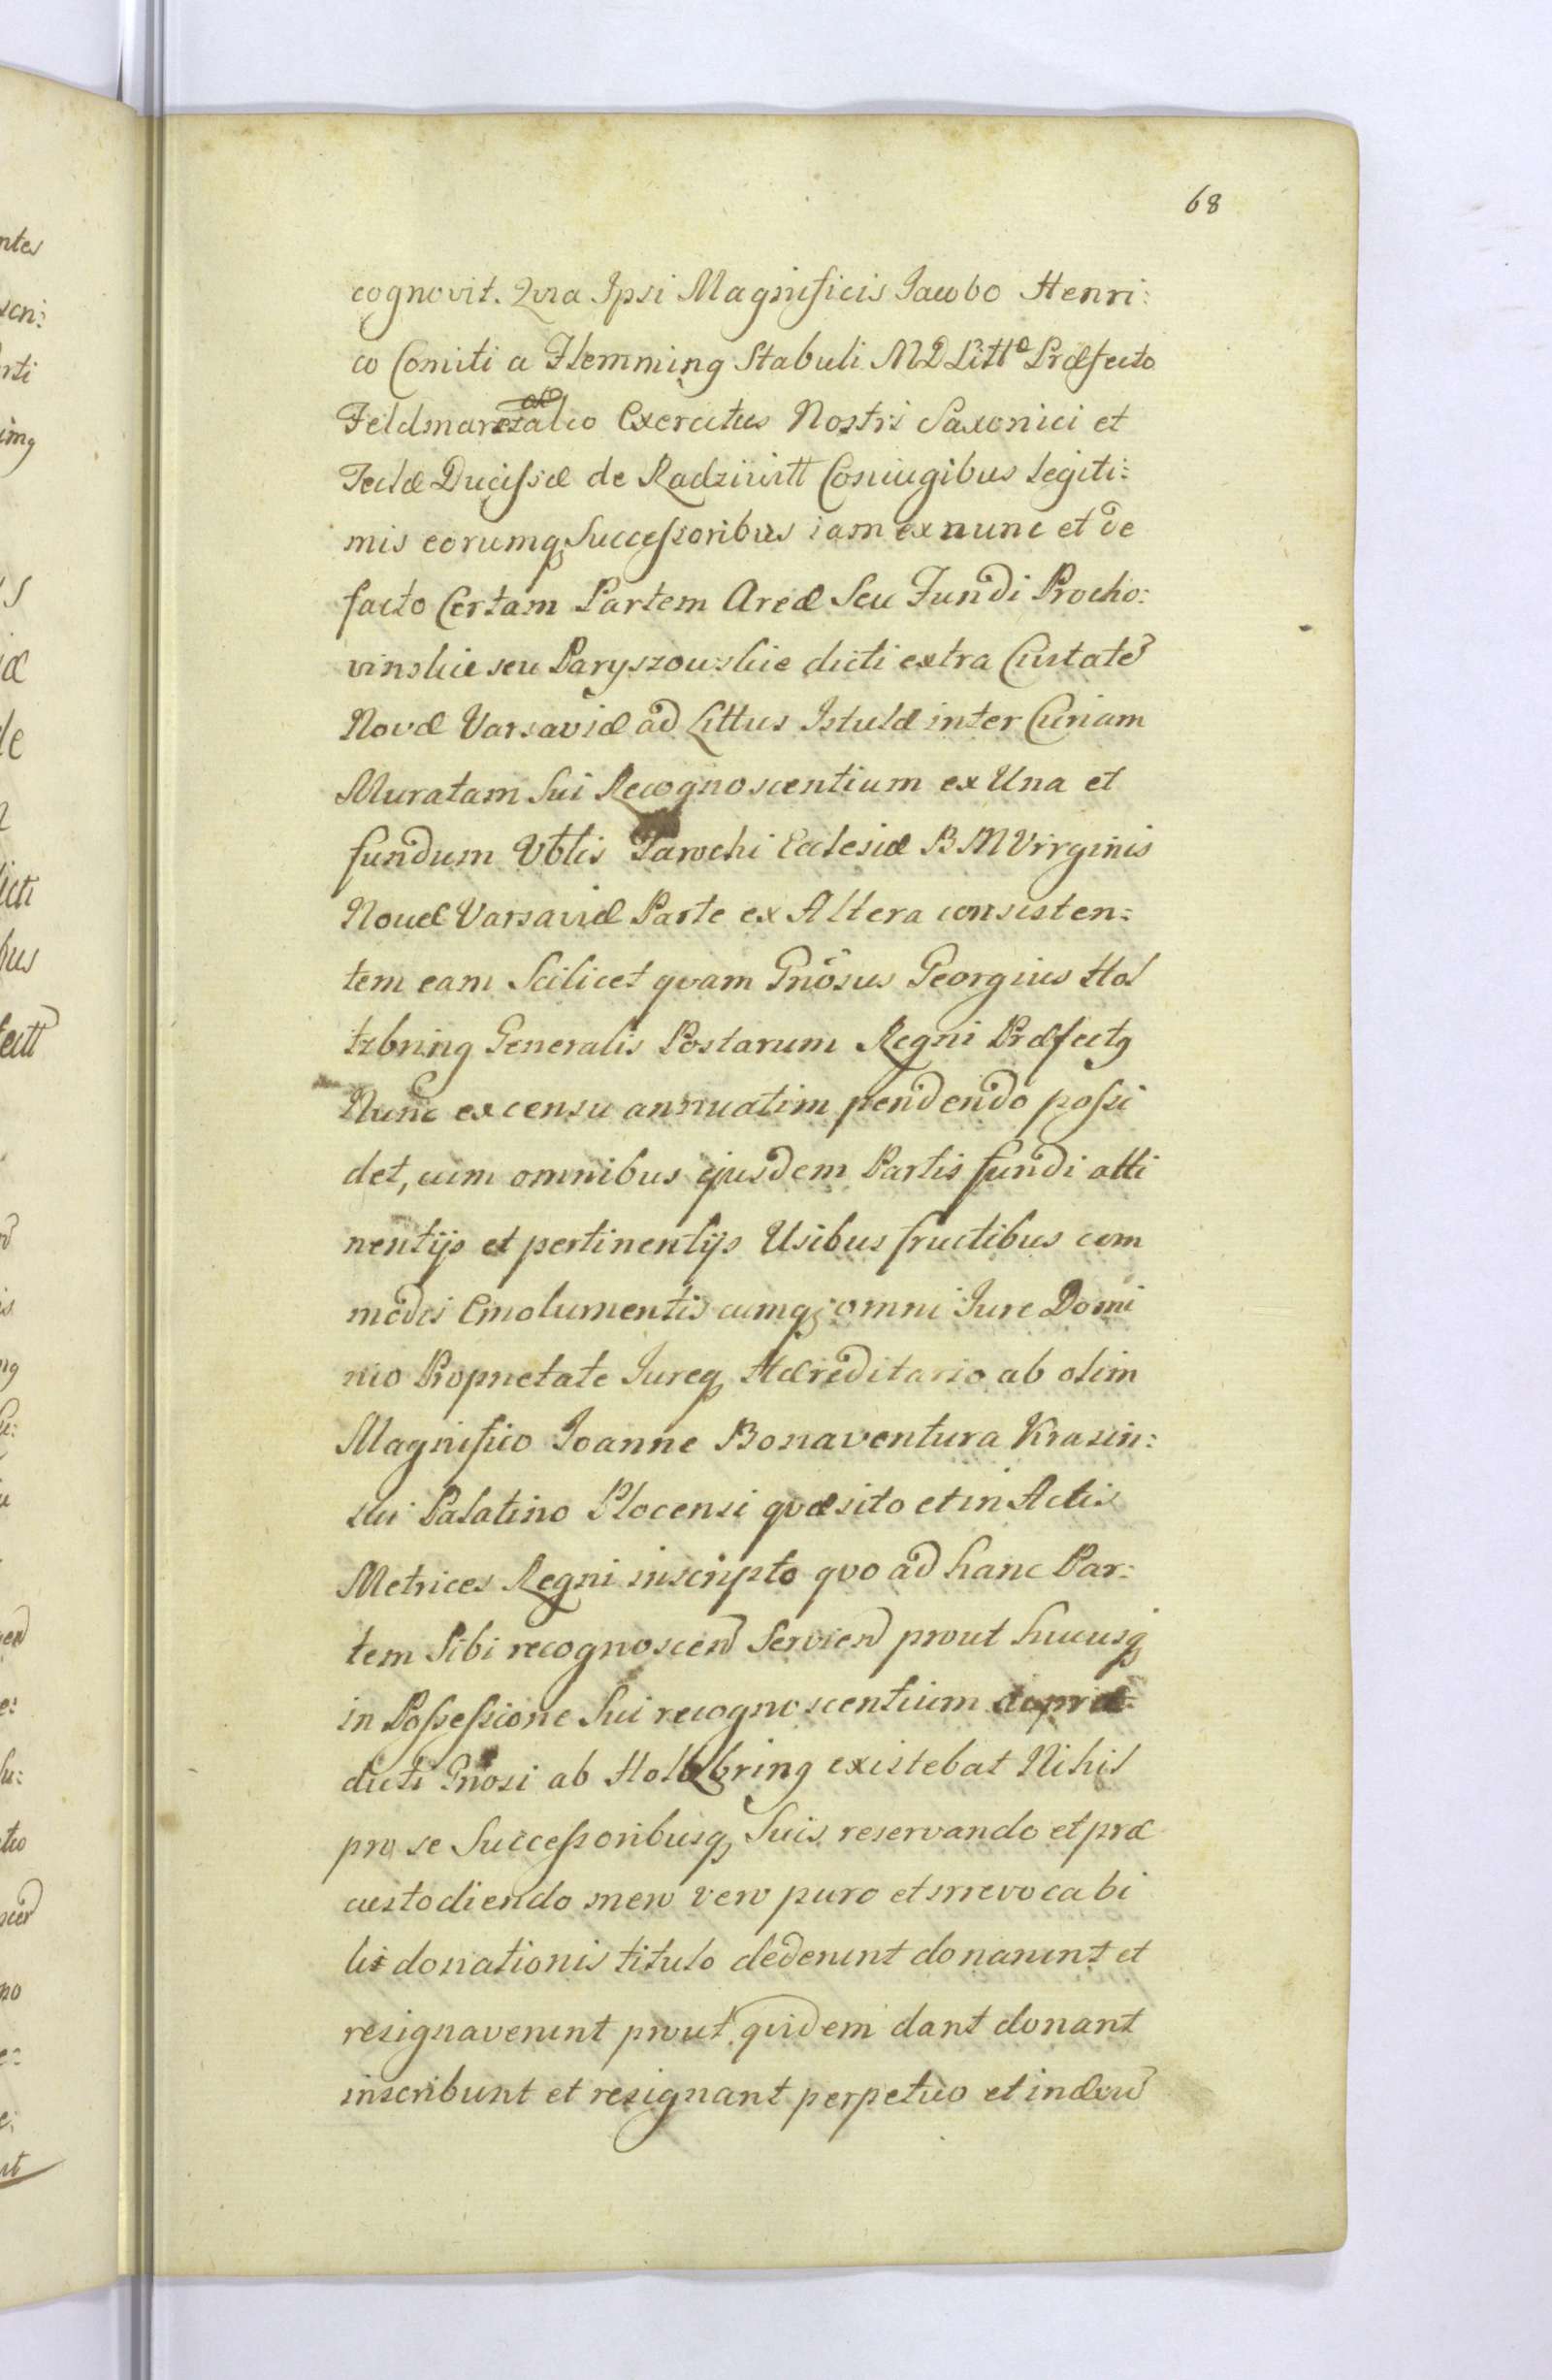 68
cognovit. Qvia Ipsi Magnificis Jacobo Henri:
co Comiti a Flemming Stabuli M D Litt͠ Præfecto
Exercitus Nostri Saxonici et
Teclæ Ducissæ de Radziwitt Coniugibus legiti:
mis eorumq Successoribus iam ex nunc et de
facto Certam Partem Areæ Seu Fundi Procho:
vinskie seu Paryszowskie dicti extra Civitatē
Novæ Varsaviæ ad Littus Istulæ inter Curiam
Muratam Sui Recognoscentium ex Una et
fundum Vblis Parochi Ecclesiæ B M Virginis
Novæ Varsaviæ Parte ex Altera consisten:
tem eam Scilicet qvam Gnōsus Georgius Hol
tzbring Generalis Postarum Regni Præfectq
Nunc ex censu annuatim pendendo possi
det, cum omnibus ejusdem Partis fundi atti
nentijs et pertinentijs Usibus fructibus com
modis Emolumentis cumq; omni Jure Domi
nio Proprietate Jureq Hæreditario ab olim
Magnifico Joanne Bonaventura Krasin:
ski Palatino Plocensi qvæsito et in Actis
Metrices Regni inscripto qvo ad hanc Par:
tem Sibi recognoscen̄ Servien̄ prout hucusq
in Possessione Sui recognoscentium
dicti Gnosi ab Holtzbring existebat Nihil
pro se Successoribusq Suis reservando et præ
custodiendo mero vero puro et irrevocabi
lis donationis titulo dederunt donarunt et
resignaverunt prout qvidem dant donant
inscribunt et resignant perpetuo et in ævū